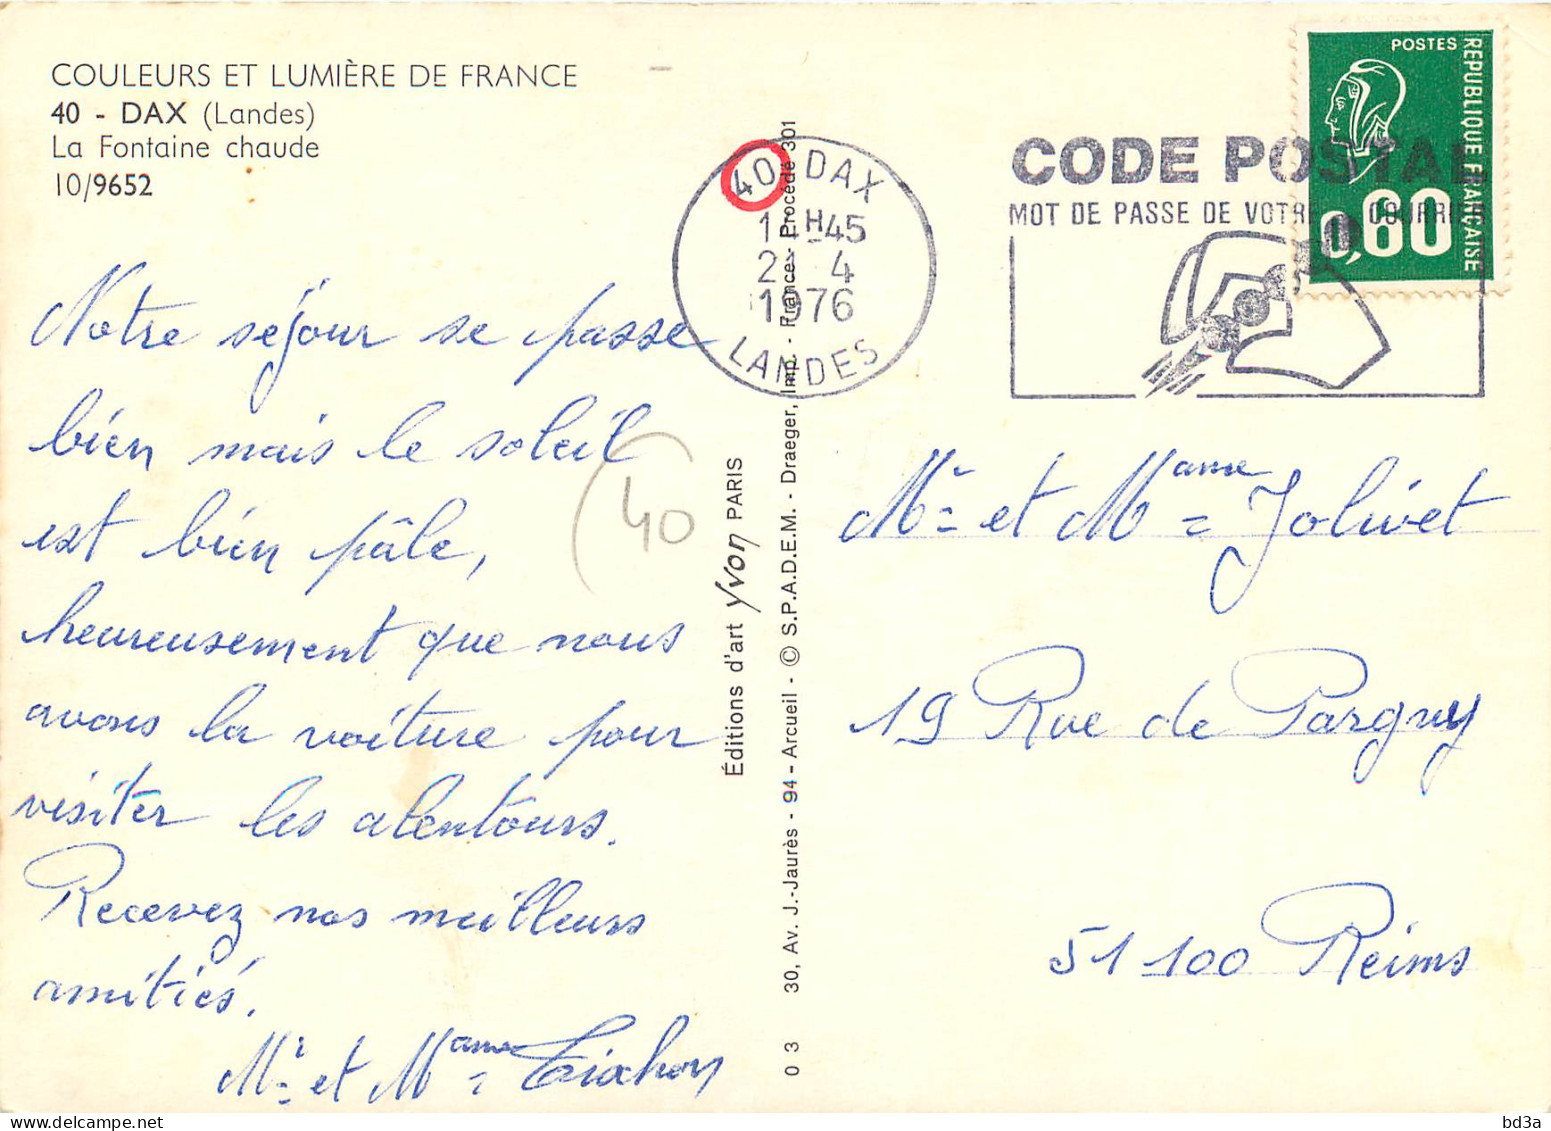 COULEURS ET LUMIÈRE DE FRANCE
40 - DAX (Landes)
La Fontaine chaude
10/9652
Notre séjour se passe
bien mais le soleil
est bien pâle,
heureusement que nous
avons la voiture pour
visiter les alentours.
Recevez nos meilleurs
amitiés.
Mr et Mame
40
Éditions d'art Yvon PARIS
0 3 30, Av. J.-Jaurès - 94 - Arcueil - © S.P.A.D.E.M. - Draeger, Imp. - France - Procédé 301
40 DAX
H45
4
1976
LANDES
CODE POSTAL
MOT DE PASSE DE VOTRE COURRIER
POSTES
REPUBLIQUE FRANÇAISE
0,60
Mr et Mame Jolivet
19 Rue de Pargny
51100 Reims
bd3a